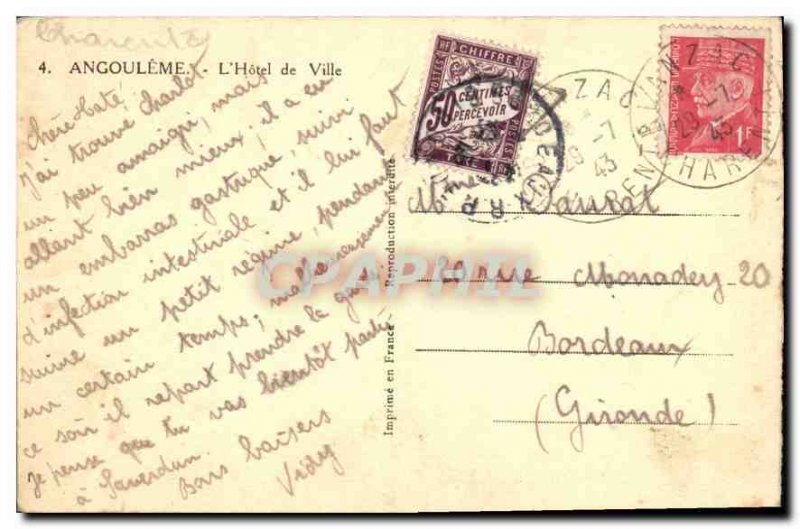 Charente
4. ANGOULÊME. - L'Hôtel de Ville
Chère Caté,
J'ai trouvé Charlot
un peu amaigri, mais
allant bien mieux, il a eu
un embarras gastrique, suivi
d'infection intestinale et il lui faut
suivre un petit régime, pendant
un certain temps; malheureusement
ce soir il repart prendre la garde
je pense que tu vas bientôt partir
à Saverdun.
Bons baisers
Imprimé en France - Reproduction interdite
RF CHIFFRE
POSTES
50 CENTIMES
A PERCEVOIR
BORDEAUX R.P.
1F
VANZAC
-7
43
CHARENTE
Mme Saurat
20 rue Monadey 20
Bordeaux
(Gironde)
CPAPHIL